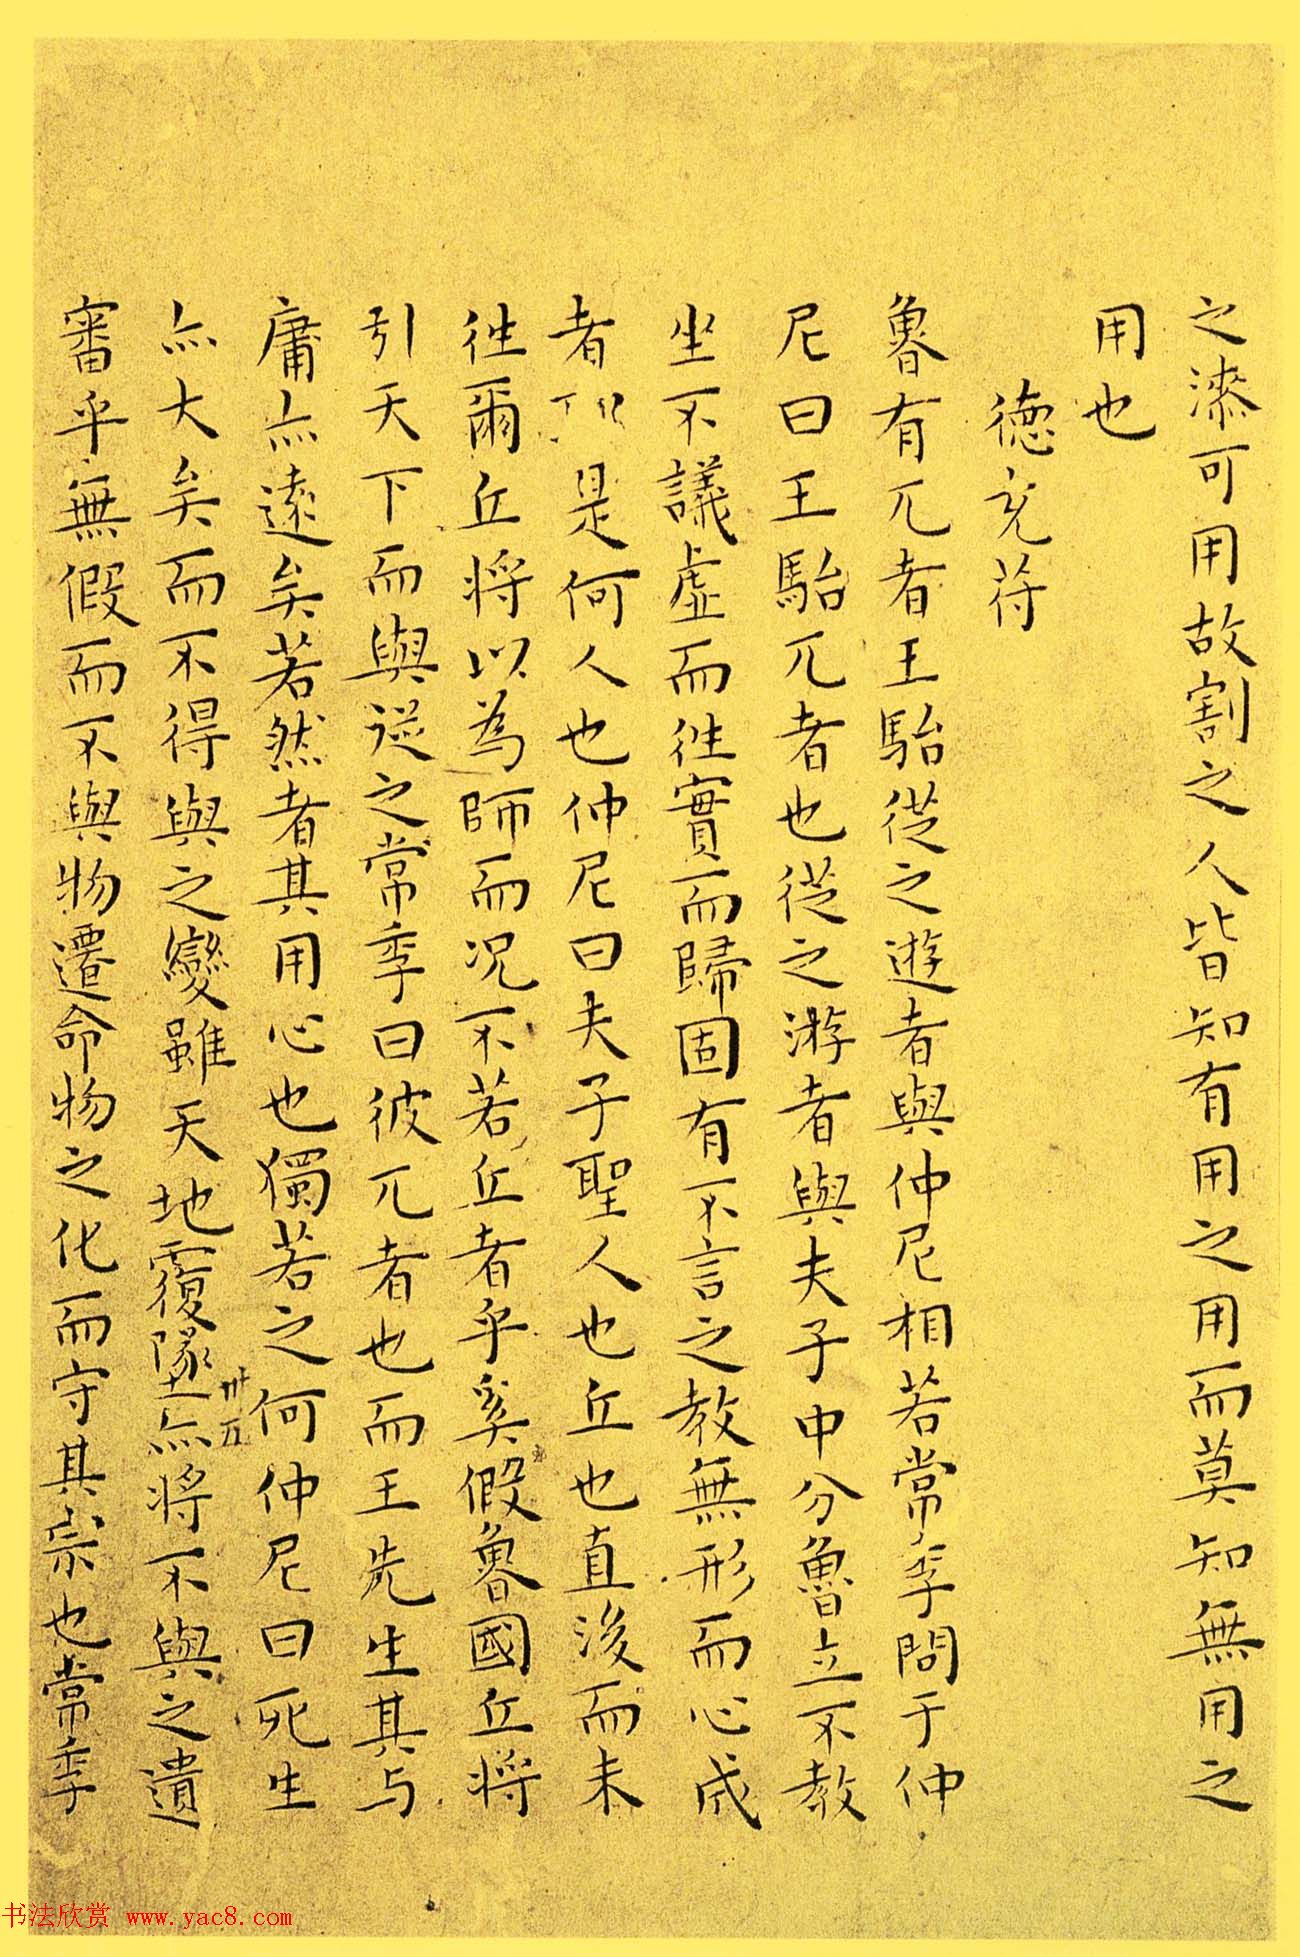 之漆可用故割之人皆知有用之用而莫知無用之
用也
德充符
魯有兀者王駘從之遊者與仲尼相若常季問于仲
尼曰王駘兀者也從之游者與夫子中分魯立不教
坐不議虛而往實而歸固有不言之教無形而心成
者是何人也仲尼曰夫子聖人也丘也直後而未
往爾丘將以為師而况不若丘者乎奚假魯國丘將
引天下而與從之常季曰彼兀者也而王先生其与
庸亦遠矣若然者其用心也獨若之何仲尼曰死生
亦大矣而不得與之變雖天地覆墜亦將不與之遺
卅五
審乎無假而不與物遷命物之化而守其宗也常季
书法欣赏 www.yac8.com